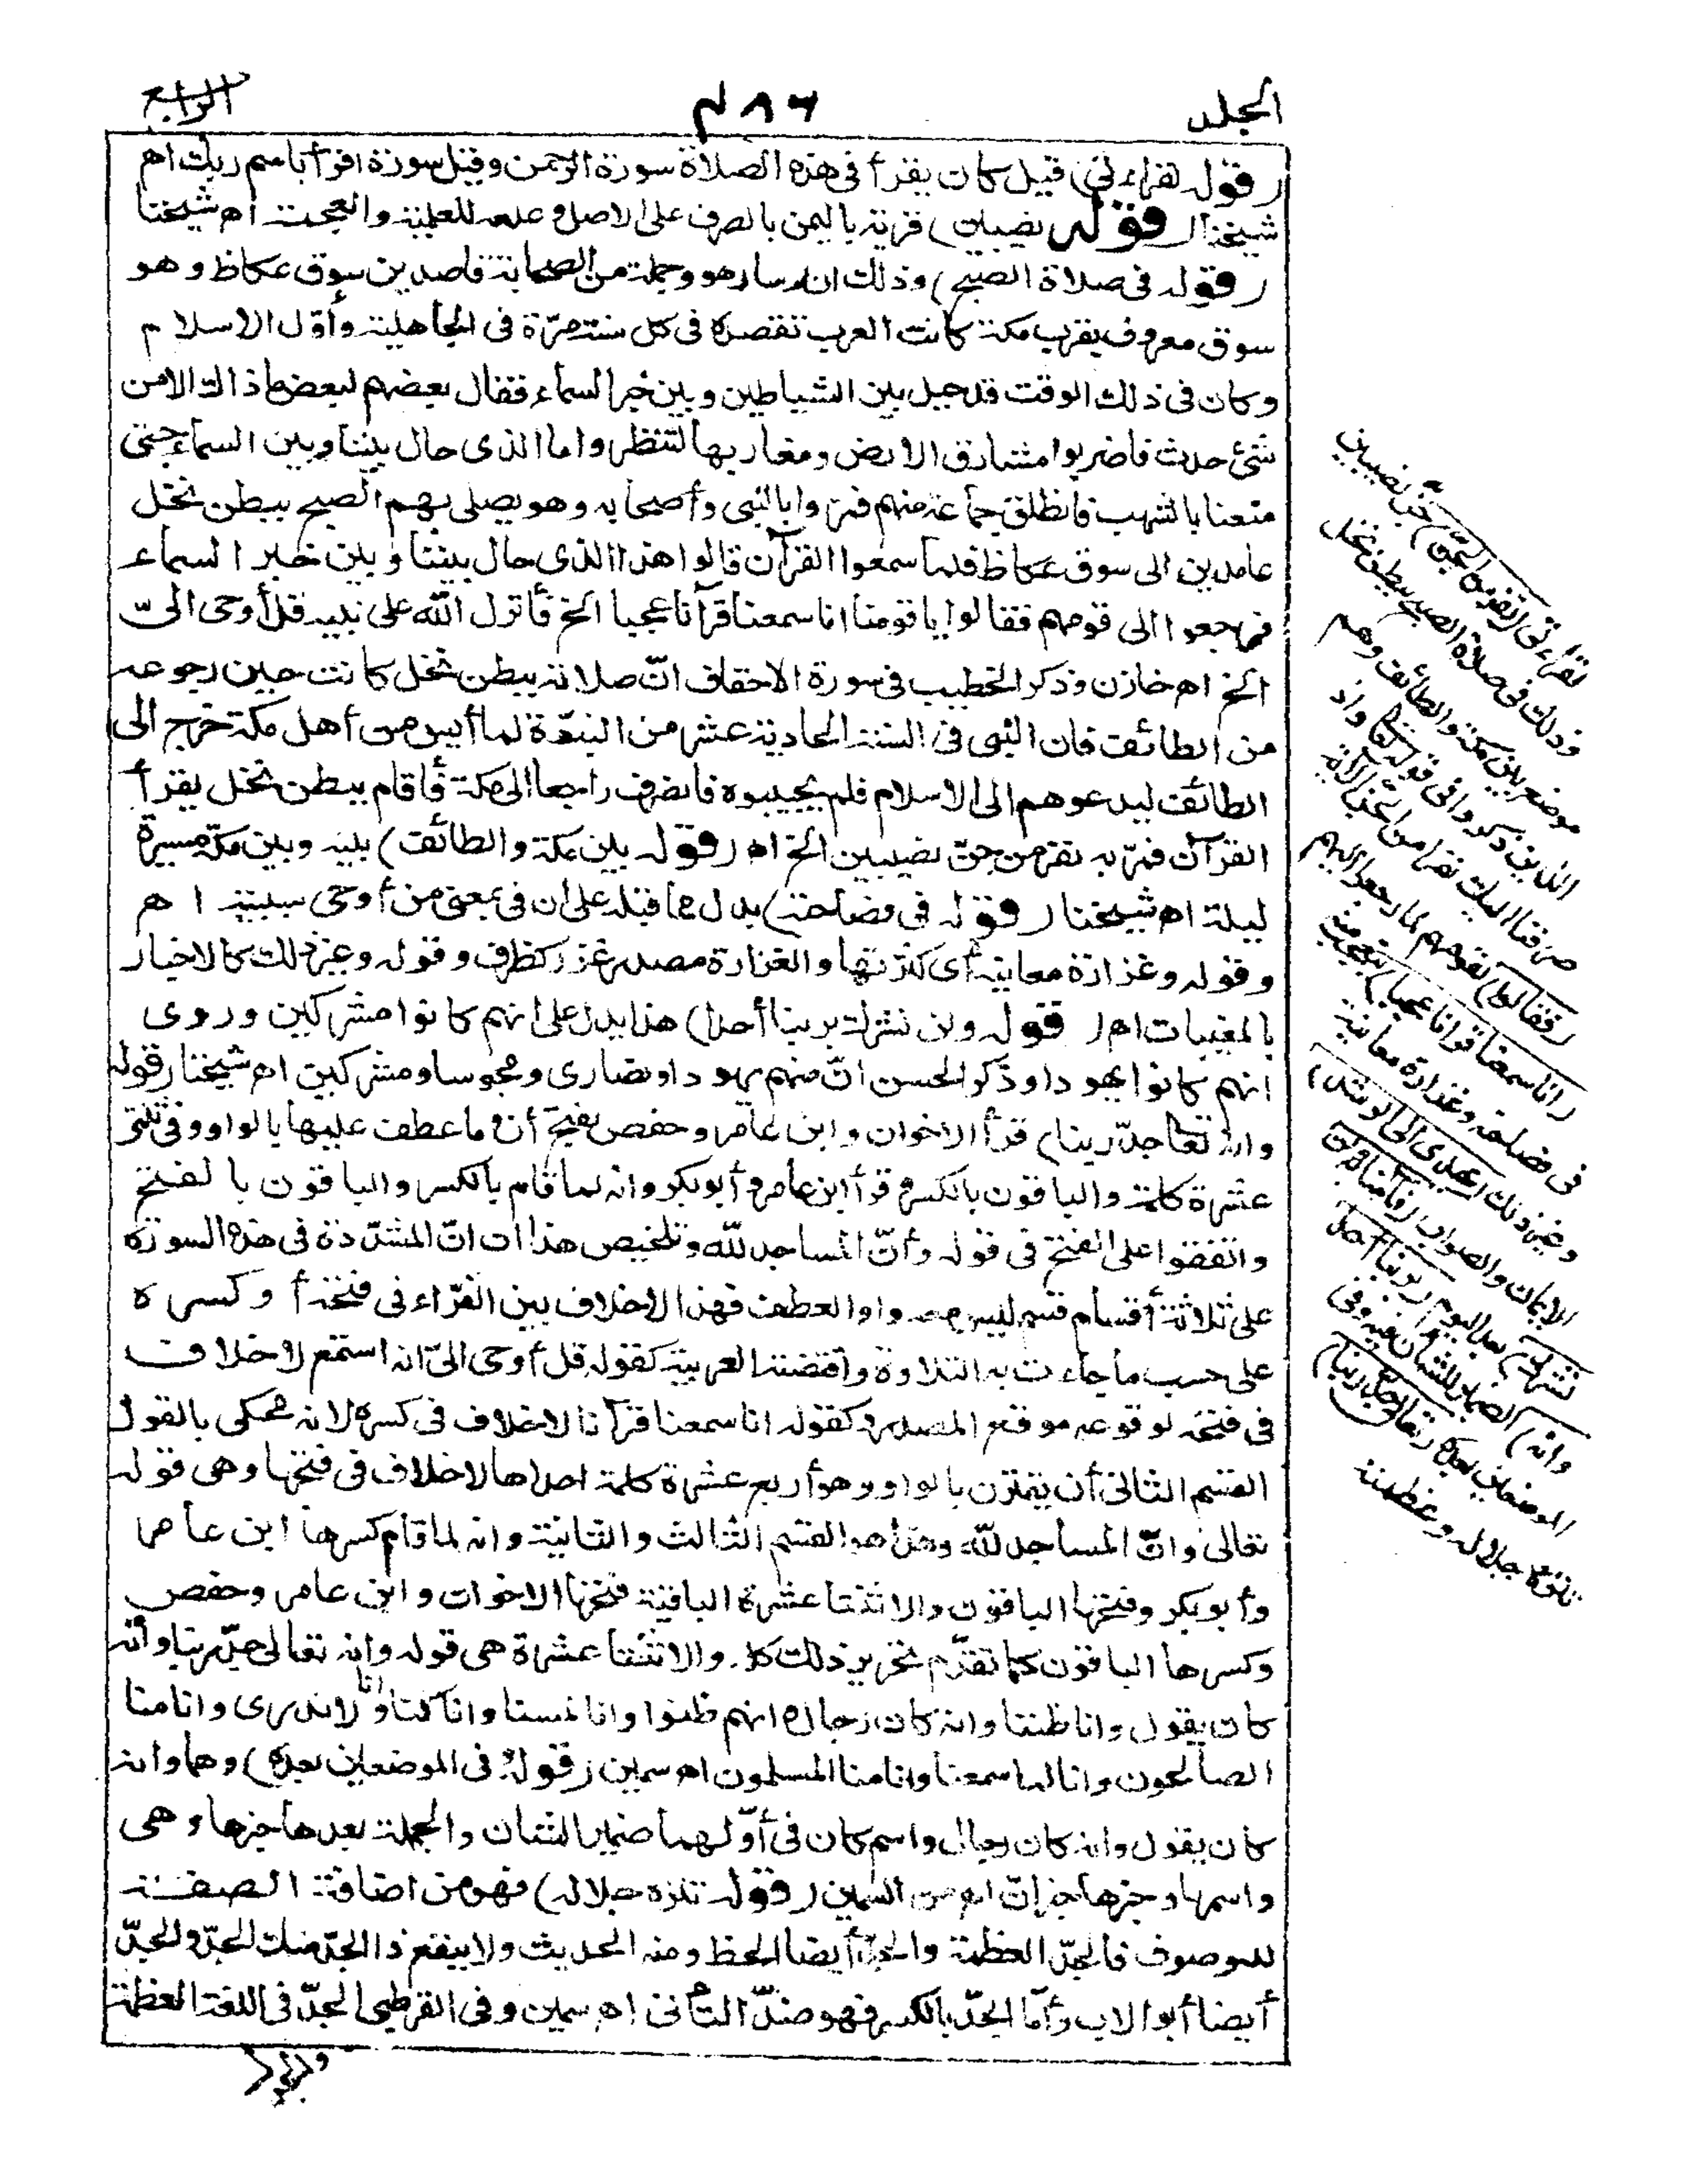 المجلد ٤٨٦ الرابع
(قوله لقراءتي) قيل كان يقرأ في هذه الصلاة سورة الرحمن وقيل سورة اقرأ باسم ربك اه
شيخنا (قوله نصيبين) قرية باليمن بالصرف على الاصل وعدمه للعلمية والعجمة اه شيخنا
(قوله في صلاة الصبح) وذلك انه سار هو وجملة من الصحابة قاصدين سوق عكاظ وهو
سوق معروف بقرب مكة كانت العرب تقصده في كل سنة مرّة في الجاهلية وأوّل الاسلام
وكان في ذلك الوقت قد حيل بين الشياطين وبين خبر السماء فقال بعضهم لبعض ما ذاك الا من
شئ حدث فاضربوا مشارق الارض ومغاربها لتنظروا ما الذى حال بيننا وبين السماء حتى
متعنا بالشهب فانطلق جماعة منهم فمرّوا بالنبي وأصحابه وهو يصلى بهم الصبح ببطن نخل
عامدين الى سوق عكاظ فلما سمعوا القرآن قالوا هذا الذى حال بيننا وبين خبر السماء
فرجعوا الى قومهم فقالوا يا قومنا انا سمعنا قرآنا عجبا الخ فأنزل الله على نبيه قل أوحى الىّ
الخ اه خازن وذكر الخطيب في سورة الاحقاف انّ صلاته ببطن نخل كانت حين رجوعه
من الطائف فان النبي في السنة الحادية عشر من النبوّة لما أيس من أهل مكة خرج الى
الطائف ليدعوهم الى الاسلام فلم يجيبوه فانصرف راجعا الى مكة فأقام ببطن نخل يقرأ
القرآن فمرّ به نفر من جنّ نصيبين الخ اه (قوله بين مكة والطائف) بينه وبين مكة مسيرة
ليلة اه شيخنا (قوله في فصاحته) بدل مما قبله على ان في بمعنى من أو حى سببية اه
وقوله وغزارة معانيه أى كثرتها والغزارة مصدر غزر كظرف وقوله وغير ذلك كالاخبار
بالمغيبات اه (قوله ولن نشرك بربنا أحدا) هذا يدل على انهم كانوا مشركين وروى
انهم كانوا يهودا وذكر الحسن انّ منهم يهودا ونصارى ومجوسا ومشركين اه شيخنا (قوله
وانه تعا جدّ ربنا) قرأ الاخوان وابن عامر وحفص بفتح أن وما عطف عليها بالواو وفي ثنتى
عشرة كلمة والباقون بالكسر وقرأ ابن عامر وأبو بكر وانه لما قام بالكسر والباقون بالفتح
واتفقوا على الفتح في قوله وأنّ المساجد لله وتلخيص هذا ات انّ المشدّدة في هذه السورة
على ثلاثة أقسام قسم ليس معه واو العطف فهذا لاخلاف بين القرّاء في فتحه أو كسره
على حسب ما جاءت به التلاوة واقتضته العربية كقوله قل أوحى الىّ انه استمع لاخلاف
في فتحه لوقوعه موقع المصدر وكقوله انا سمعنا قرآنا لاخلاف في كسره لانه محكى بالقول
القسم الثانى أن يقترن بالواو وهو أربع عشرة كلمة احداها لاخلاف في فتحها وهى قوله
تعالى وانّ المساجد لله وهذا هو القسم الثالث والثانية وانه لما قام كسرها ابن عامر
وأبو بكر وفتحها الباقون والاثنتا عشرة الباقية فتحها الاخوان وابن عامر وحفص
وكسرها الباقون كما تقدّم تحرير ذلك كله والاثنتا عشرة هى قوله وانه تعالى جدّ ربنا وأنه
كان يقول وانا ظننا وانه كان رجال وانهم ظنوا وانا لمسنا وانا كنا وانا لا ندرى وانا منا
الصالحون وانا لما سمعنا وانا منا المسلمون اه سمين (قوله في الموضعين بعده) وهما وانه
كان يقول وانه كان رجال واسم كان في أوّلهما ضمير الشان والجملة بعدها خبرها وهى
واسمها وخبرها خبر انّ اه من السمين (قوله تنزه جلاله) فهو من اضافة الصفة
للموصوف فالجدّ العظمة والجدّ أيضا الحظ ومنه الحديث ولا ينفع ذا الجدّ منك الجدّ والجدّ
أيضا أبو الاب وأمّا الجدّ بالكسر فهو ضدّ التأنى اه سمين وفي القرطبى الجدّ في اللغة العظمة
لقراءتى (نفر من الجنّ) جن نصيبين
وذلك في صلاة الصبح ببطن نخل
موضع بين مكة والطائف وهم
الذين ذكروا في قوله تعا واذ
صرفنا اليك نفرا من الجنّ الاية
(فقالوا) لقومهم لما رجعوا اليهم
(انا سمعنا قرانا عجبا) يتعجب منه
في فصاحته وغزارة معانيه
وغير ذلك (يهدى الى الرشد)
الايمان والصواب (فآمنا به ولن
نشرك) بعد اليوم (بربنا أحدا
وانه) الضمير للشان فيه وفي
الموضعين بعده (تعالى جدّ ربنا)
تنزه جلاله وعظمته